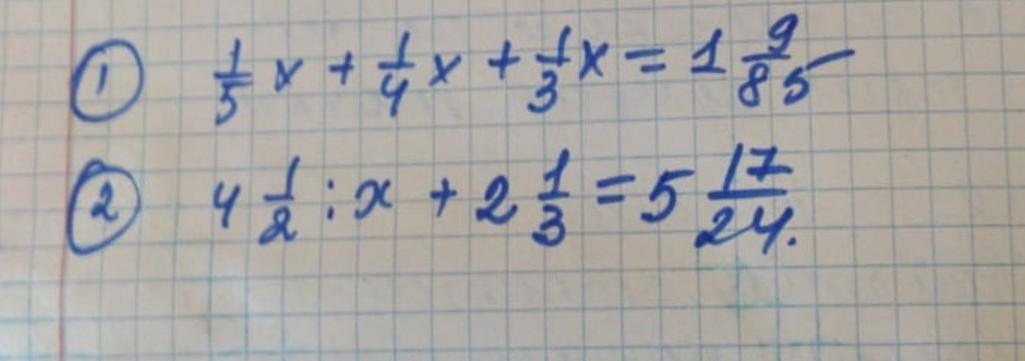 ① 1/5 x + 1/4 x + 1/3 x = 1 9/85
② 4 1/2 : x + 2 1/3 = 5 17/24.